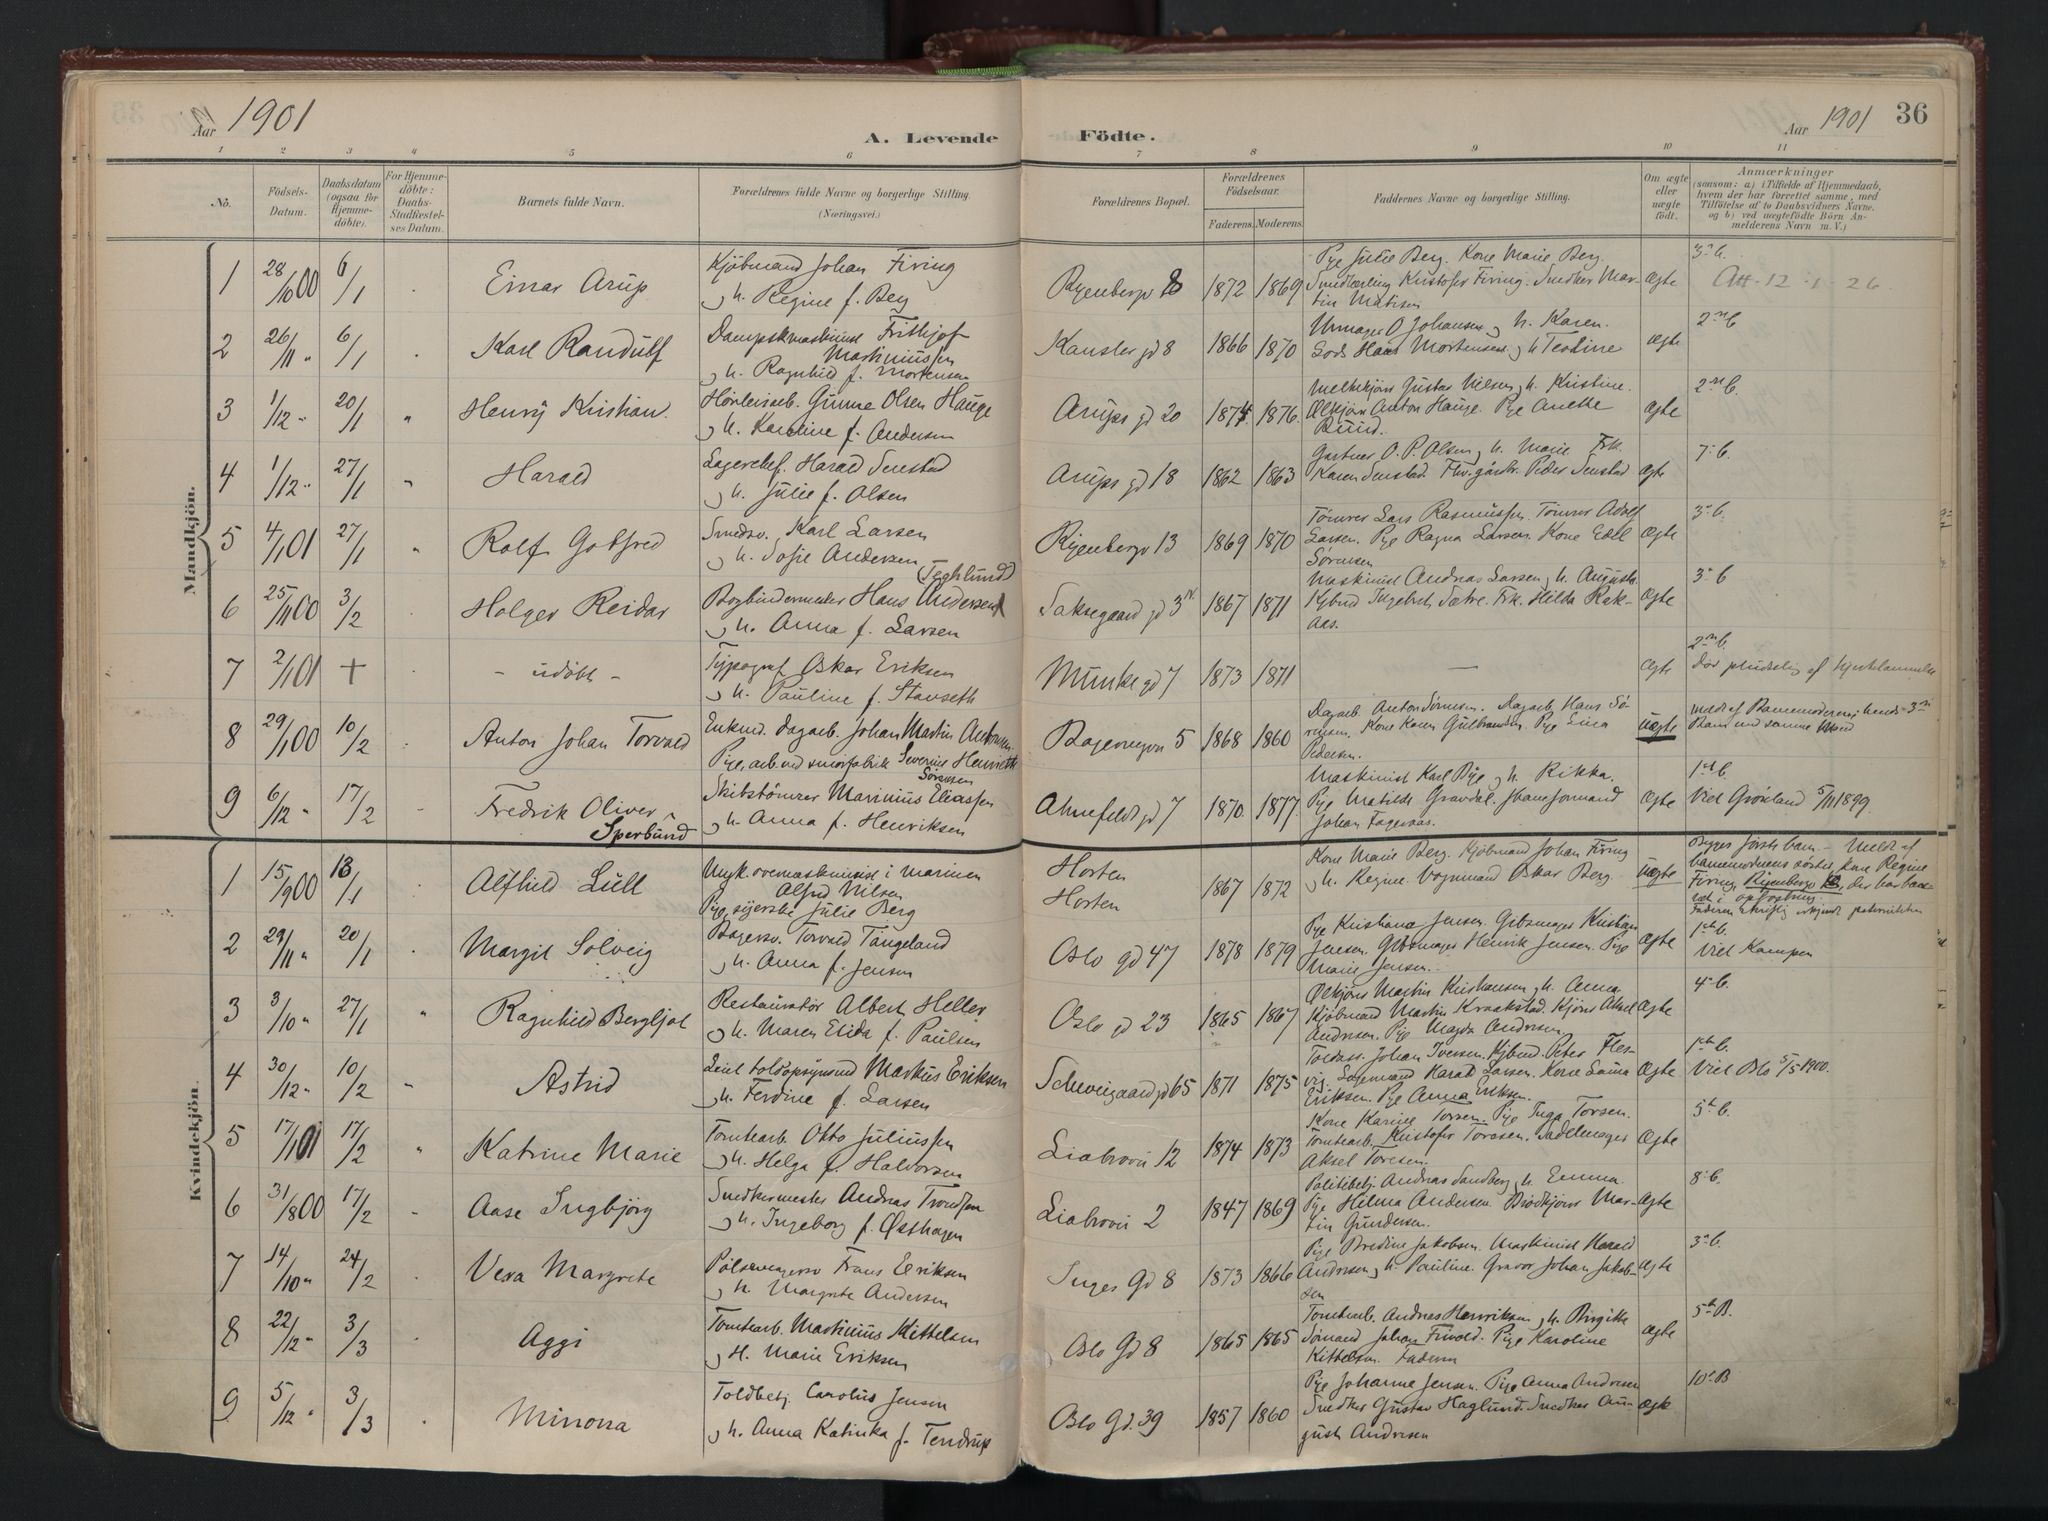 Aar 1901
A. Levende
1 2 3 4 5 6
No.
Födsels-
Datum.
Daabsdatum
(ogsaa for
Hjemme-
döbte).
For Hjemme-
döbte:
Daabs-
Stadfæstel-
ses Datum.
Barnets fulde Navn.
Forældrenes fulde Navne og borgerlige Stilling.
(Næringsvei.)
Mandkjön.
1 28/10 00 6/1 Einar Arup
Kjöbmand Johan Firing
og h. Regine f. Berg
2 26/11 " 6/1 Karl Randulf
Dampskmaskinist Frithjof
Martiniussen
og h. Ragnhild f. Mortensen
3 1/12 " 20/1 " Henry Kristian.
Gunne Olsen Hauge
og h. Karoline f. Andersen
4 1/12 " 27/1 " Harald
Lagerchef. Harald Senstad
og h. Julie f. Olsen
5 4/1 01 27/1 " Rolf Gotfred
Smedsv. Karl Larsen
og h. Sofie Andersen
(Teglund)
6 25/11 00 3/2 Holger Reidar
Bogbindermester Hans Andersen
og h. Anna f. Larsen
7 2/1 01 + - udöbt -
Typograf Oskar Eriksen
og h. Pauline f. Stavseth
8 29/1 00 10/2 Anton Johan Torvald
Enkmd. dagarb. Johan Martin Antonsen
Pige, arb. ved smörfabrik Severine Henriette
Sörensen
9 6/12 " 17/2 Fredrik Oliver
Sperbund
Skibstömrer Marinius Eliassen
og h. Anna f. Henriksen
Kvindekjön.
1 15/9 00 13/1 Alfhild Lull
Ungk. overmaskinist i marinen
Alfred Nilsen
Pige, syerske Julie Berg
2 29/11 " 20/1 Margit Solveig
Bagersv. Torvald Tangeland
og h. Anna f. Jensen
3 3/10 " 27/1 " Ragnhild Bergljot
Restauratör Albert Heller
og h. Maren Elida f. Paulsen
4 30/12 " 10/2 " Astrid
toldopsynsmd Markus Eriksen
og h. Ferdine f. Larsen
5 17/1 01 17/2 " Katrine Marie
Tomtearb. Otto Juliussen
og h. Helga f. Halvorsen
6 31/8 00 17/2 Aase Ingbjörg
Snedkermester Andreas Trondsen
og h. Ingeborg f. Østhagen
7 14/10 " 24/2 Vera Margrete
Pölsemagersv Frans Eriksen
og h. Margrete Andersen
8 22/12 " 3/3 Aggi
Tomtearb. Martinius Kittelsen
og H. Marie Eriksen
9 5/12 " 3/3 Minona
Toldbetj. Carolus Jensen
og h. Anna Katinka f. Tendrup
Födte.
Aar 1901 36
7 8 9 10 11
Forældrenes Bopæl.
Forældrenes
Födselsaar.
Faderens. Moderens.
Faddernes Navne og borgerlige Stilling.
Om ægte
eller
uægte
födt.
Anmærkninger
(saasom: a) i Tilfælde af Hjemmedaab,
hvem der har forrettet samme, med
Tilföielse af to Daabsvidners Navne.
og b) ved uægtefödte Börn An-
melderens Navn m. V.)
Pige Julie Berg. Kone Marie Berg.
Ryenbergv 8 1872 1869 Kristofer Firing. Snedker Mar-
tin Matisen
Ægte 3die b.
Att. 12-1-26.
Urmager O. Johansen og h. Karen.
Kansler gd 8 1866 1870 Gods Hans Mortensen og h Teodine
ægte 2net b
Melkekjörer Gustav Nilsen og h. Kristine.
Arups gd 20 1874. 1876. Ølkjörer Anton Hauge. Pige Anethe
Ruud.
Ægte 2net b.
Gartner O. P. Olsen og h. Marie Frk.
Arups gd 18 1862 1863 Karen Senstad. Peder Senstad
ægte 7. b.
Tömrer Lars Rasmussen. Tömrer Adolf
Ryenbergv 13 1869 1870 Larsen. Pige Ragna Larsen. Kone
Sörensen
Ægte 3. b.
Maskinist Andreas Larsen og h. Augusta
Saksegaard gd 3 1867 1871 Kjbmd Ingebret Sætre. Frk. Hilda Rak-
aas.
Ægte 3. b
Munke gd 7 1873 1871 —
ægte 2net b.
Död pludselig af hjertelammelse
Dagarb. Anton Sörensen. Dagarb. Hans Sö-
Bagerengvn 5 1868 1860 rensen. Kone Karen Gulbrandsen. Pige Lina
Pedersen.
Uægte meldt af Barnemoderen; hendes 3die
Barn ved samme Mand
Maskinist Karl Bye og h. Rikka.
Ahnefeldt gd 7 1870. 1877. Pige Matilde Gravdal.
Johan Fageraas.
Ægte 1ste b.
Viet Grönland 5/11 1899.
Horten
Horten 1867 1872
Kone Marie Berg. Kjöbmand Johan Firing
og h. Regine. Vognmand Oskar Berg.
Uægte
Begges förste barn. - Meldt af
barnemoderens söster, kone Regine
Firing, Ryenbergv 8, der har bar-
net i opfostring.
Faderen skriftlig erkjendt paterniteten
Pige Kristiana Jensen. Gibsmager Kristian
Oslo gd 47 1878 1879 Jensen. Gibsmager Henrik Jensen. Pige
Marie Jensen.
Ægte 1ste b.
Viet Kampen
Ølkjörer Martin Kristiansen og h. Anna
Oslo gd 23 1865 1867 Kjöbmand Martin Kraakstad. Kjörer Aksel
Andresen. Pige Magda Andresen.
Ægte 4. b.
Toldass. Johan Iversen. Kjbmd. Peter Fles-
Schweigaard gd 65 1871 1875 vig. Harald Larsen. Kone Laura
Eriksen. Pige Anna Eriksen.
Ægte 1ste b.
Viet Oslo 5/5 1900.
Kone Karine Torsen. Pige Inga Torsen.
Liabrovei 12 1874 1873 Tomtearb. Kristofer Toresen. Sadelmager
Aksel Toresen.
Ægte 5te b.
Politibetj. Andreas Sandberg og h. Emma.
Liabrovei 2 1847 1869 Pige Helma Andersen. Brödkjörer Mar-
tin Gundersen.
Ægte 8. b.
Pige Bredine Jakobsen. Maskinist Harald
Inges Gd 8 1873 1866 Andresen og h. Pauline. Gravör Johan Jakob-
sen
Ægte 3. b.
Tomtearb. Andreas Henriksen og h. Birgitte
Oslo Gd 8 1865 1865 Sömand Johan Frivold. Pige Karoline
Kittelsen. Faderen
Ægte 5te B.
Pige Johanne Jensen. Pige Anna Andresen
Oslo Gd. 39 1857 1860 Snedker Gustav Haglund. Snedker Au-
gust Andresen
Ægte 10. B